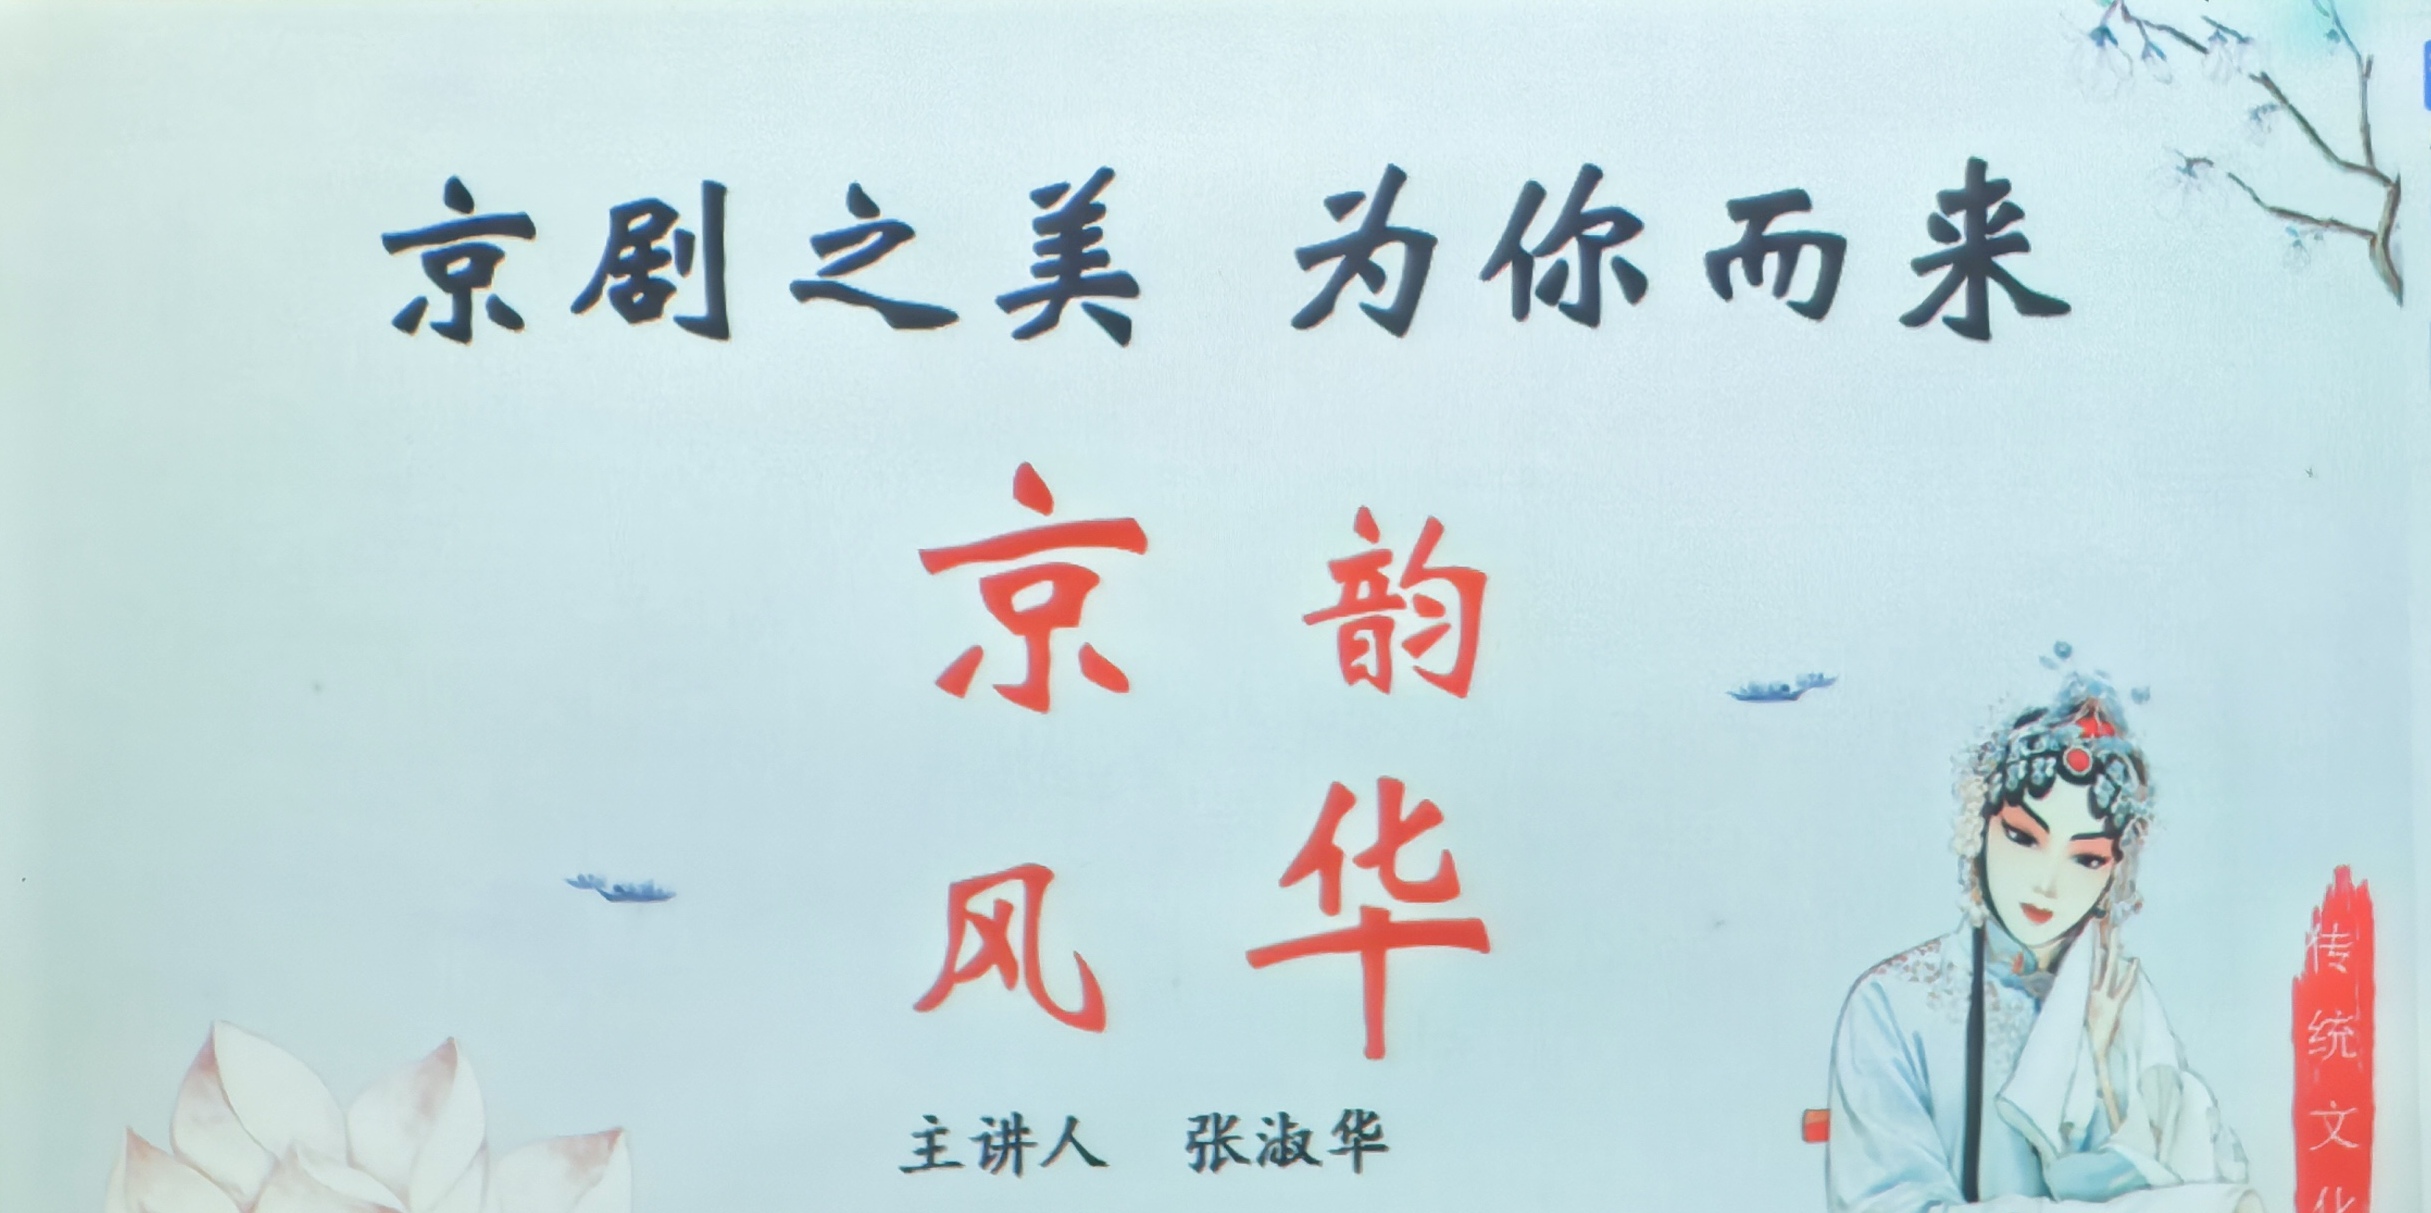 京剧之美 为你而来
京韵
风华
主讲人 张淑华
传统文化